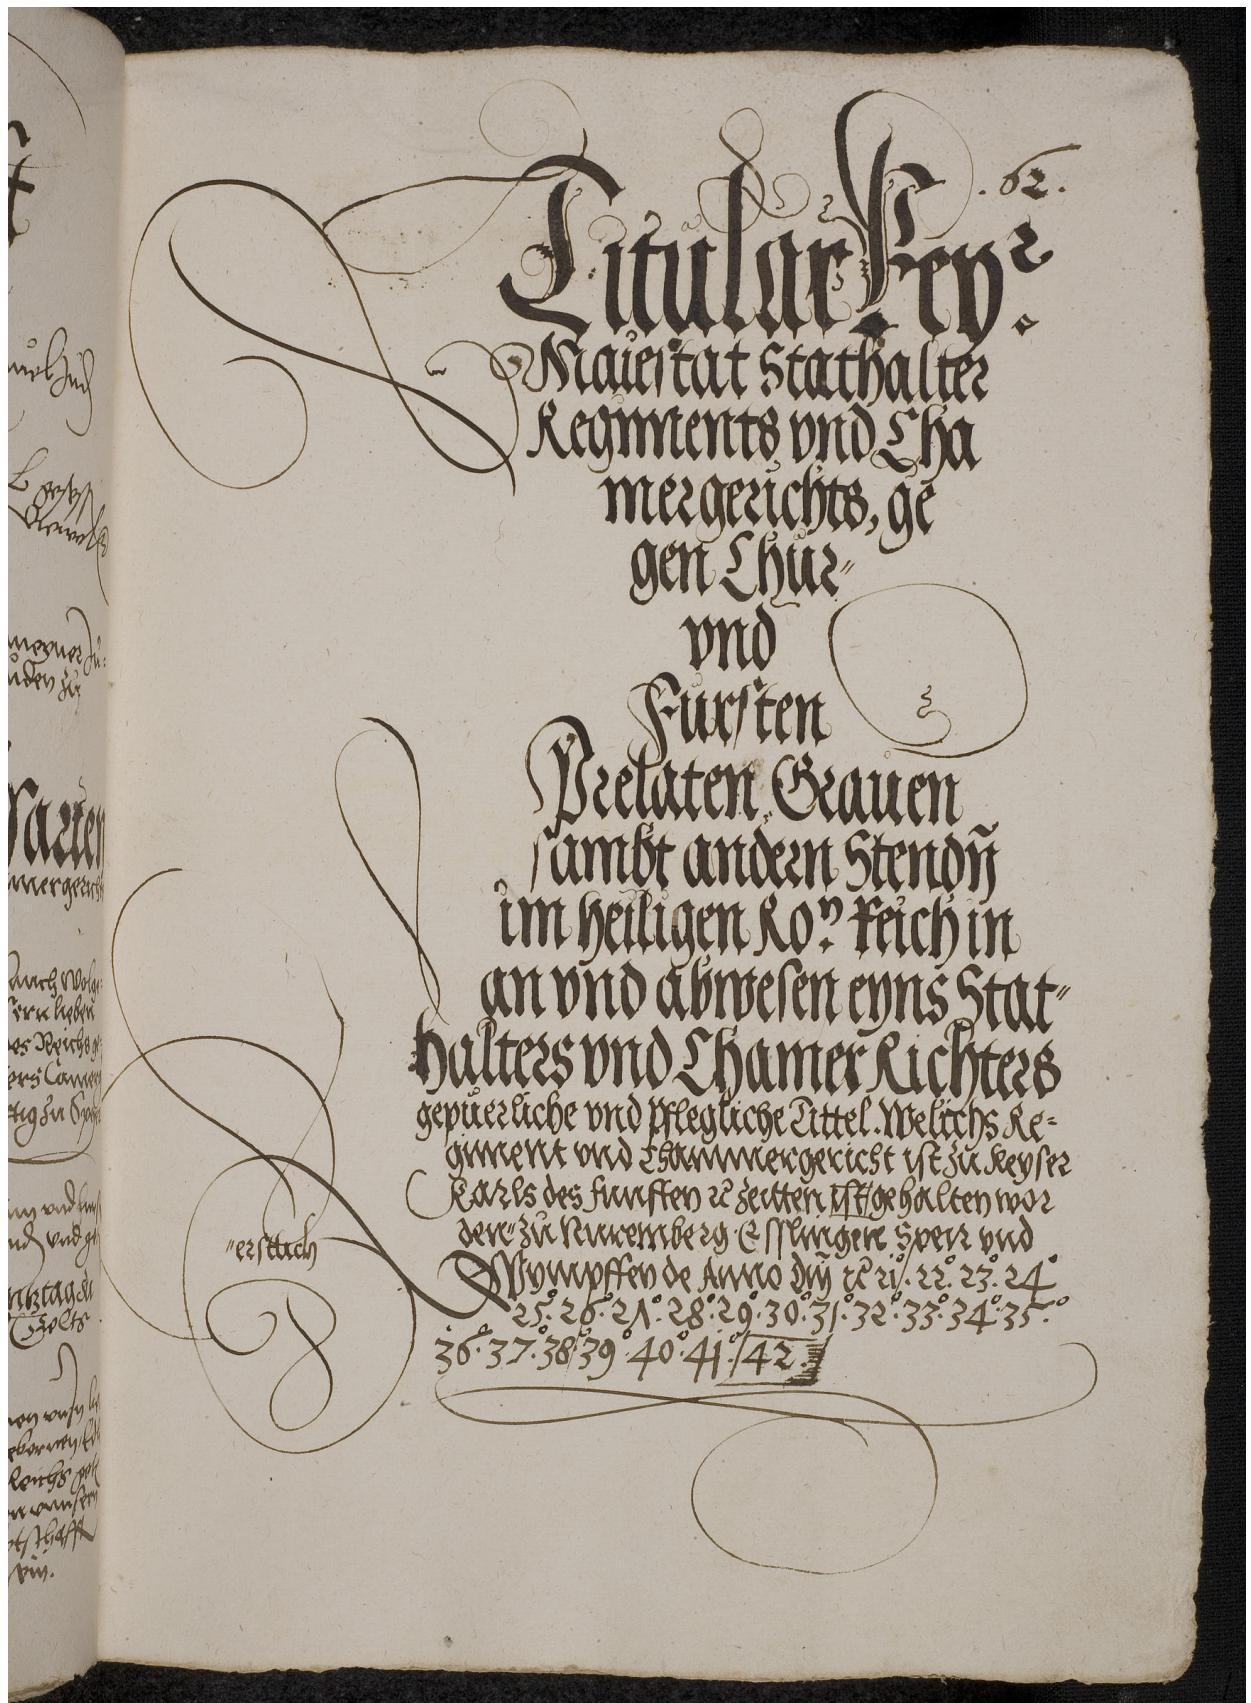 .62.
Titular Keyr.
Maiestat Stathalter
Regiments vnd Cha
mergerichts, ge
gen Chur"
vnd
Fursten
Prelaten, Grauen
sambt andern Stendn̄
im heiligen Ro.n Reich in
an vnd abwesen eyns Stat"
halters vnd Chamer Richters
gepuerliche vnd pflegliche Tittel. Welichs Re=
giment vnd Chammergericht ist zu Keyser
Karls des funfften ꝛc zeitten ist gehalten wor
den" zu Nuremberg Esslingen Speir vnd
"erstlich
Wympffen de Anno Dn̄j ꝛc 21°. 22°. 23°. 24°
25°. 26°. 27°. 28°. 29°. 30°. 31°. 32°. 33°. 34°. 35°.
36°. 37°. 38°. 39°. 40°. 41°. 42.